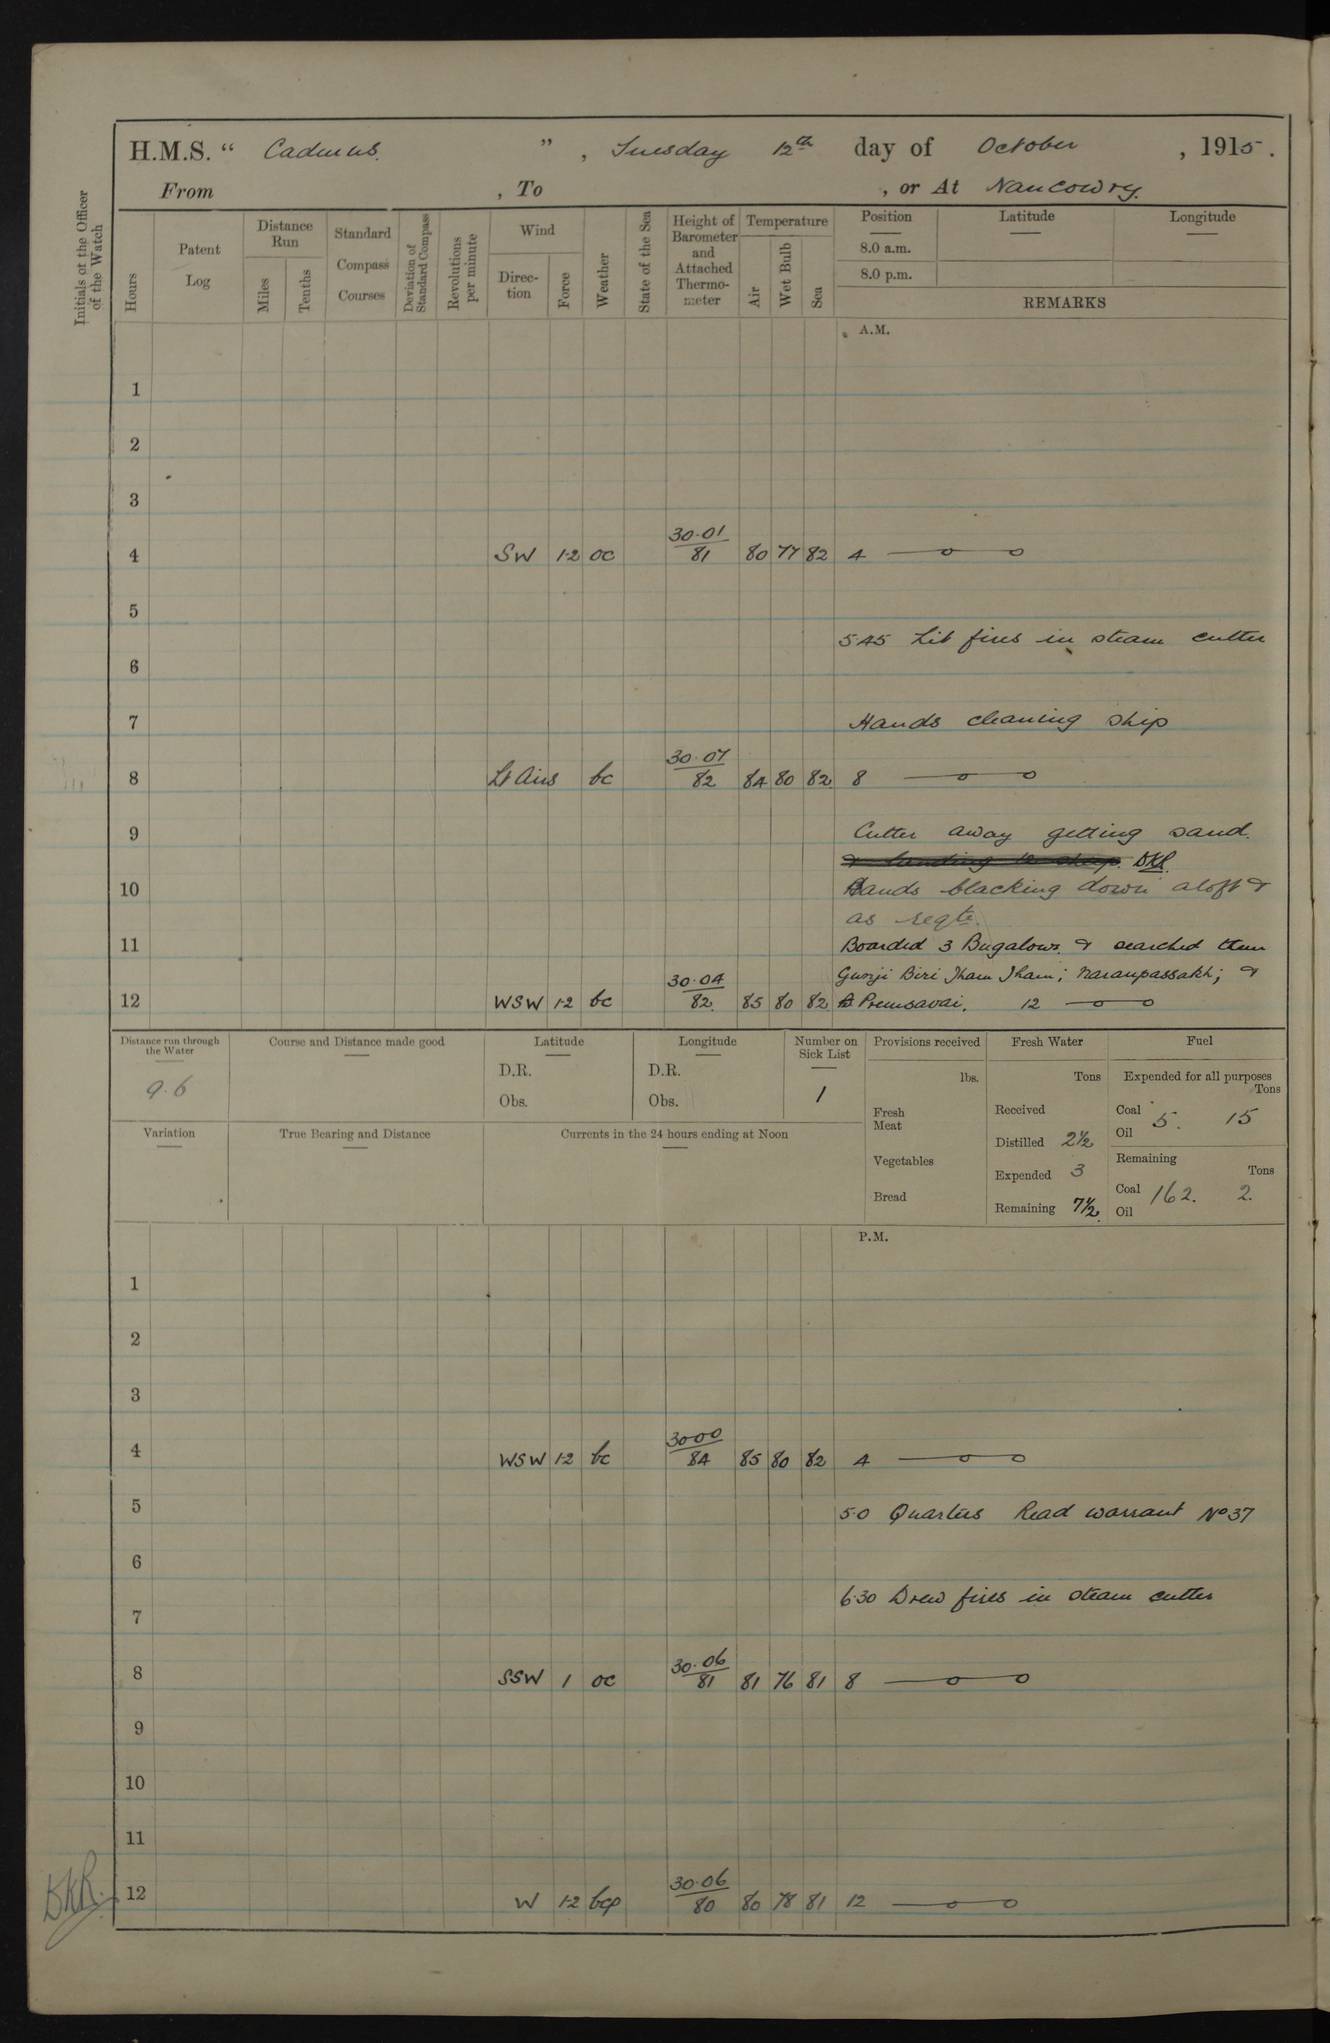 H.M.S. " Cadmus. ", Tuesday 12th day of October, 1915.
From , To , or At Nancowry.
Initials of the Officer of the Watch
Hours
Patent Log
Distance Run
Miles
Tenths
Standard Compass Courses
Deviation of Standard Compass
Revolutions per minute
Wind
Direction
Force
Weather
State of the Sea
Height of Barometer and Attached Thermometer
Temperature
Air
Wet Bulb
Sea
Position Latitude Longitude
8.0 a.m.
8.0 p.m.
REMARKS
A.M.
1
2
3
4 SW 1-2 oc 30·01/81 80 77 82 4
5
5·45 Lit fires in steam cutter
6
7 Hands cleaning ship
8 Lt Airs bc 30·07/82 84 80 82 8
9 Cutter away getting sand.
DKR.
10 Hands blacking down aloft &
as reqte.
11 Boarded 3 Bugalows. & searched them
Gunji Biri Jham Jham; Naranpassakh; &
12 WSW 1-2 bc 30·04/82 85 80 82 Premsavai. 12
Distance run through the Water
9.6
Course and Distance made good
Latitude
D.R.
Obs.
Longitude
D.R.
Obs.
Number on Sick List
1
Provisions received
lbs.
Fresh Meat
Vegetables
Bread
Fresh Water
Tons
Received
Distilled 2½
Expended 3
Remaining 7½
Fuel
Expended for all purposes
Tons
Coal 5. 15
Oil
Remaining
Tons
Coal 162. 2.
Oil
Variation
True Bearing and Distance
Currents in the 24 hours ending at Noon
P.M.
1
2
3
4 WSW 1-2 bc 30·00/84 85 80 82 4
5 5·0 Quarters Read warrant No 37
6
6·30 Drew fires in steam cutter
7
8 SSW 1 oc 30·06/81 81 76 81 8
9
10
11
12 W 1-2 bcp 30·06/80 80 78 81 12
DKR.